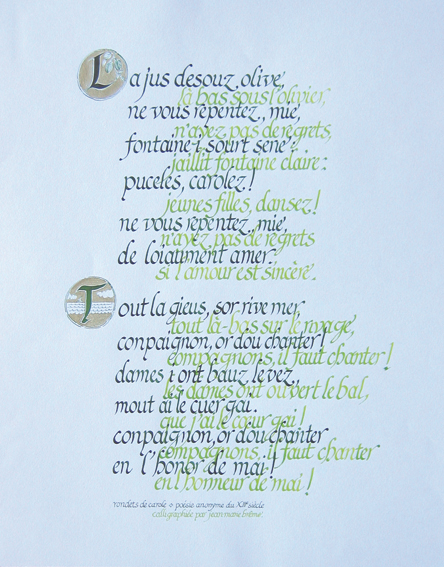 La jus desouz, olive,
là bas sous l'olivier,
ne vous repentez, mie,
n'ayez pas de regrets,
fontaine i sourt serie:
jaillit fontaine claire:
puceles, carolez!
jeunes filles, dansez!
ne vous repentez, mie,
n'ayez pas de regrets
de loiaument amer.
si l'amour est sincère.
Tout la gieus, sor rive mer,
tout là-bas sur le rivage,
conpaignon, or dou chanter!
compagnons, il faut chanter!
dames i ont bauz levez,
les dames ont ouvert le bal,
mout ai le cuer gai.
que j'ai le cœur gai!
conpaignon, or dou chanter
compagnons, il faut chanter
en l'honor de mai!
en l'honneur de mai!
rondets de carole poésie anonyme du XIIIe siècle
calligraphiée par jean marie